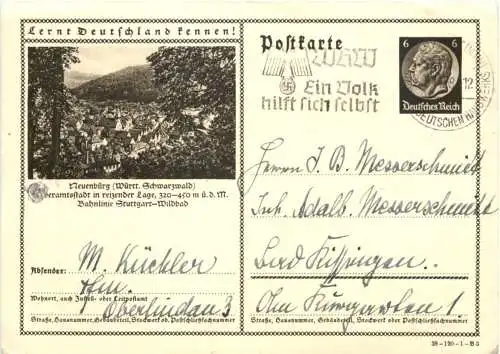 Lernt Deutschland kennen!
Neuenbürg (Württ. Schwarzwald)
Oberamtsstadt in reizender Lage, 320–450 m ü. d. M.
Bahnlinie Stuttgart–Wildbad
Absender: M. Küchler
Ffm.
Wohnort, auch Zustell- oder Leitpostamt
Oberlindau 3
Straße, Hausnummer, Gebäudeteil, Stockwerk od. Postschließfachnummer
Postkarte
WHW
Ein Volk
hilft sich selbst
6 6
Deutsches Reich
12
DEUTSCHEN
Herrn J. B. Messerschmidt
Inh. Adalb. Messerschmidt
Bad Kissingen.
Am Kurgarten 1.
Straße, Hausnummer, Gebäudeteil, Stockwerk oder Postschließfachnummer